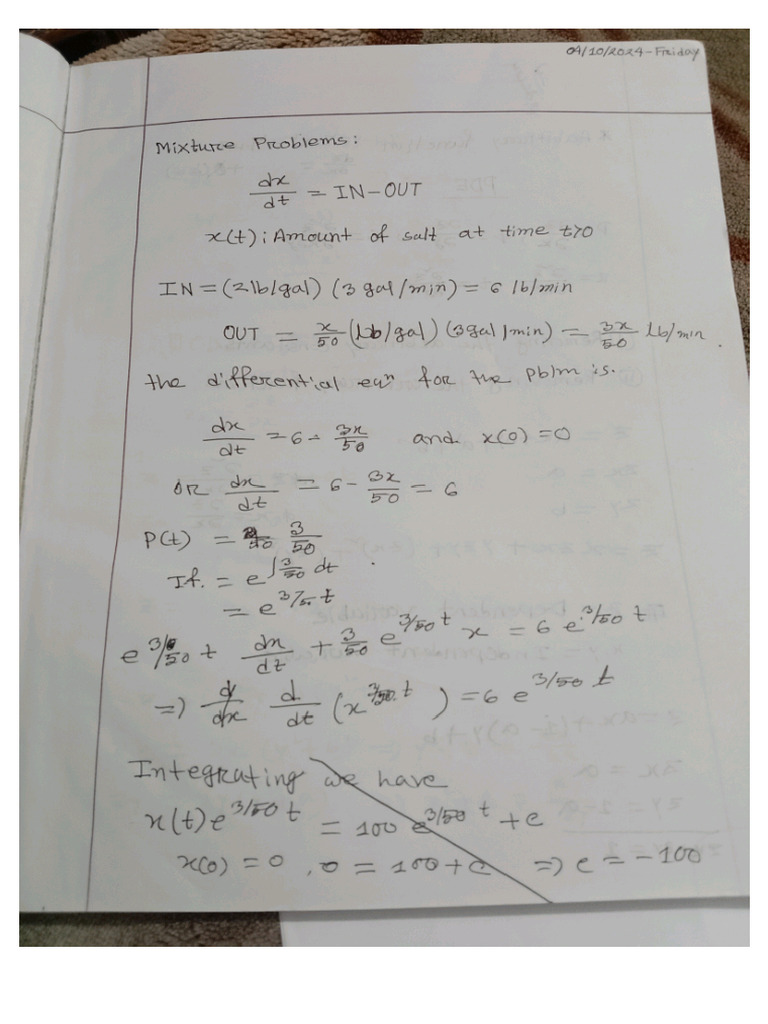 04/10/2024-Friday
Mixture Problems:
dx/dt = IN-OUT
x(t): Amount of salt at time t>0
IN = (2lb/gal) (3 gal/min) = 6 lb/min
OUT = x/50 (lb/gal) (3gal/min) = 3x/50 lb/min.
the differential eqn for the pblm is.
dx/dt = 6 - 3x/50 and x(0) = 0
OR dx/dt = 6 - 3x/50 = 6
P(t) = 3/50
If. = e^∫3/50 dt
= e^3/50 t
e^3/50 t dx/dt + 3/50 e^3/50 t x = 6 e^3/50 t
=> d/dt (x^3/50 t) = 6 e^3/50 t
Integrating we have
x(t) e^3/50 t = 100 e^3/50 t + c
x(0) = 0, 0 = 100 + c => c = -100